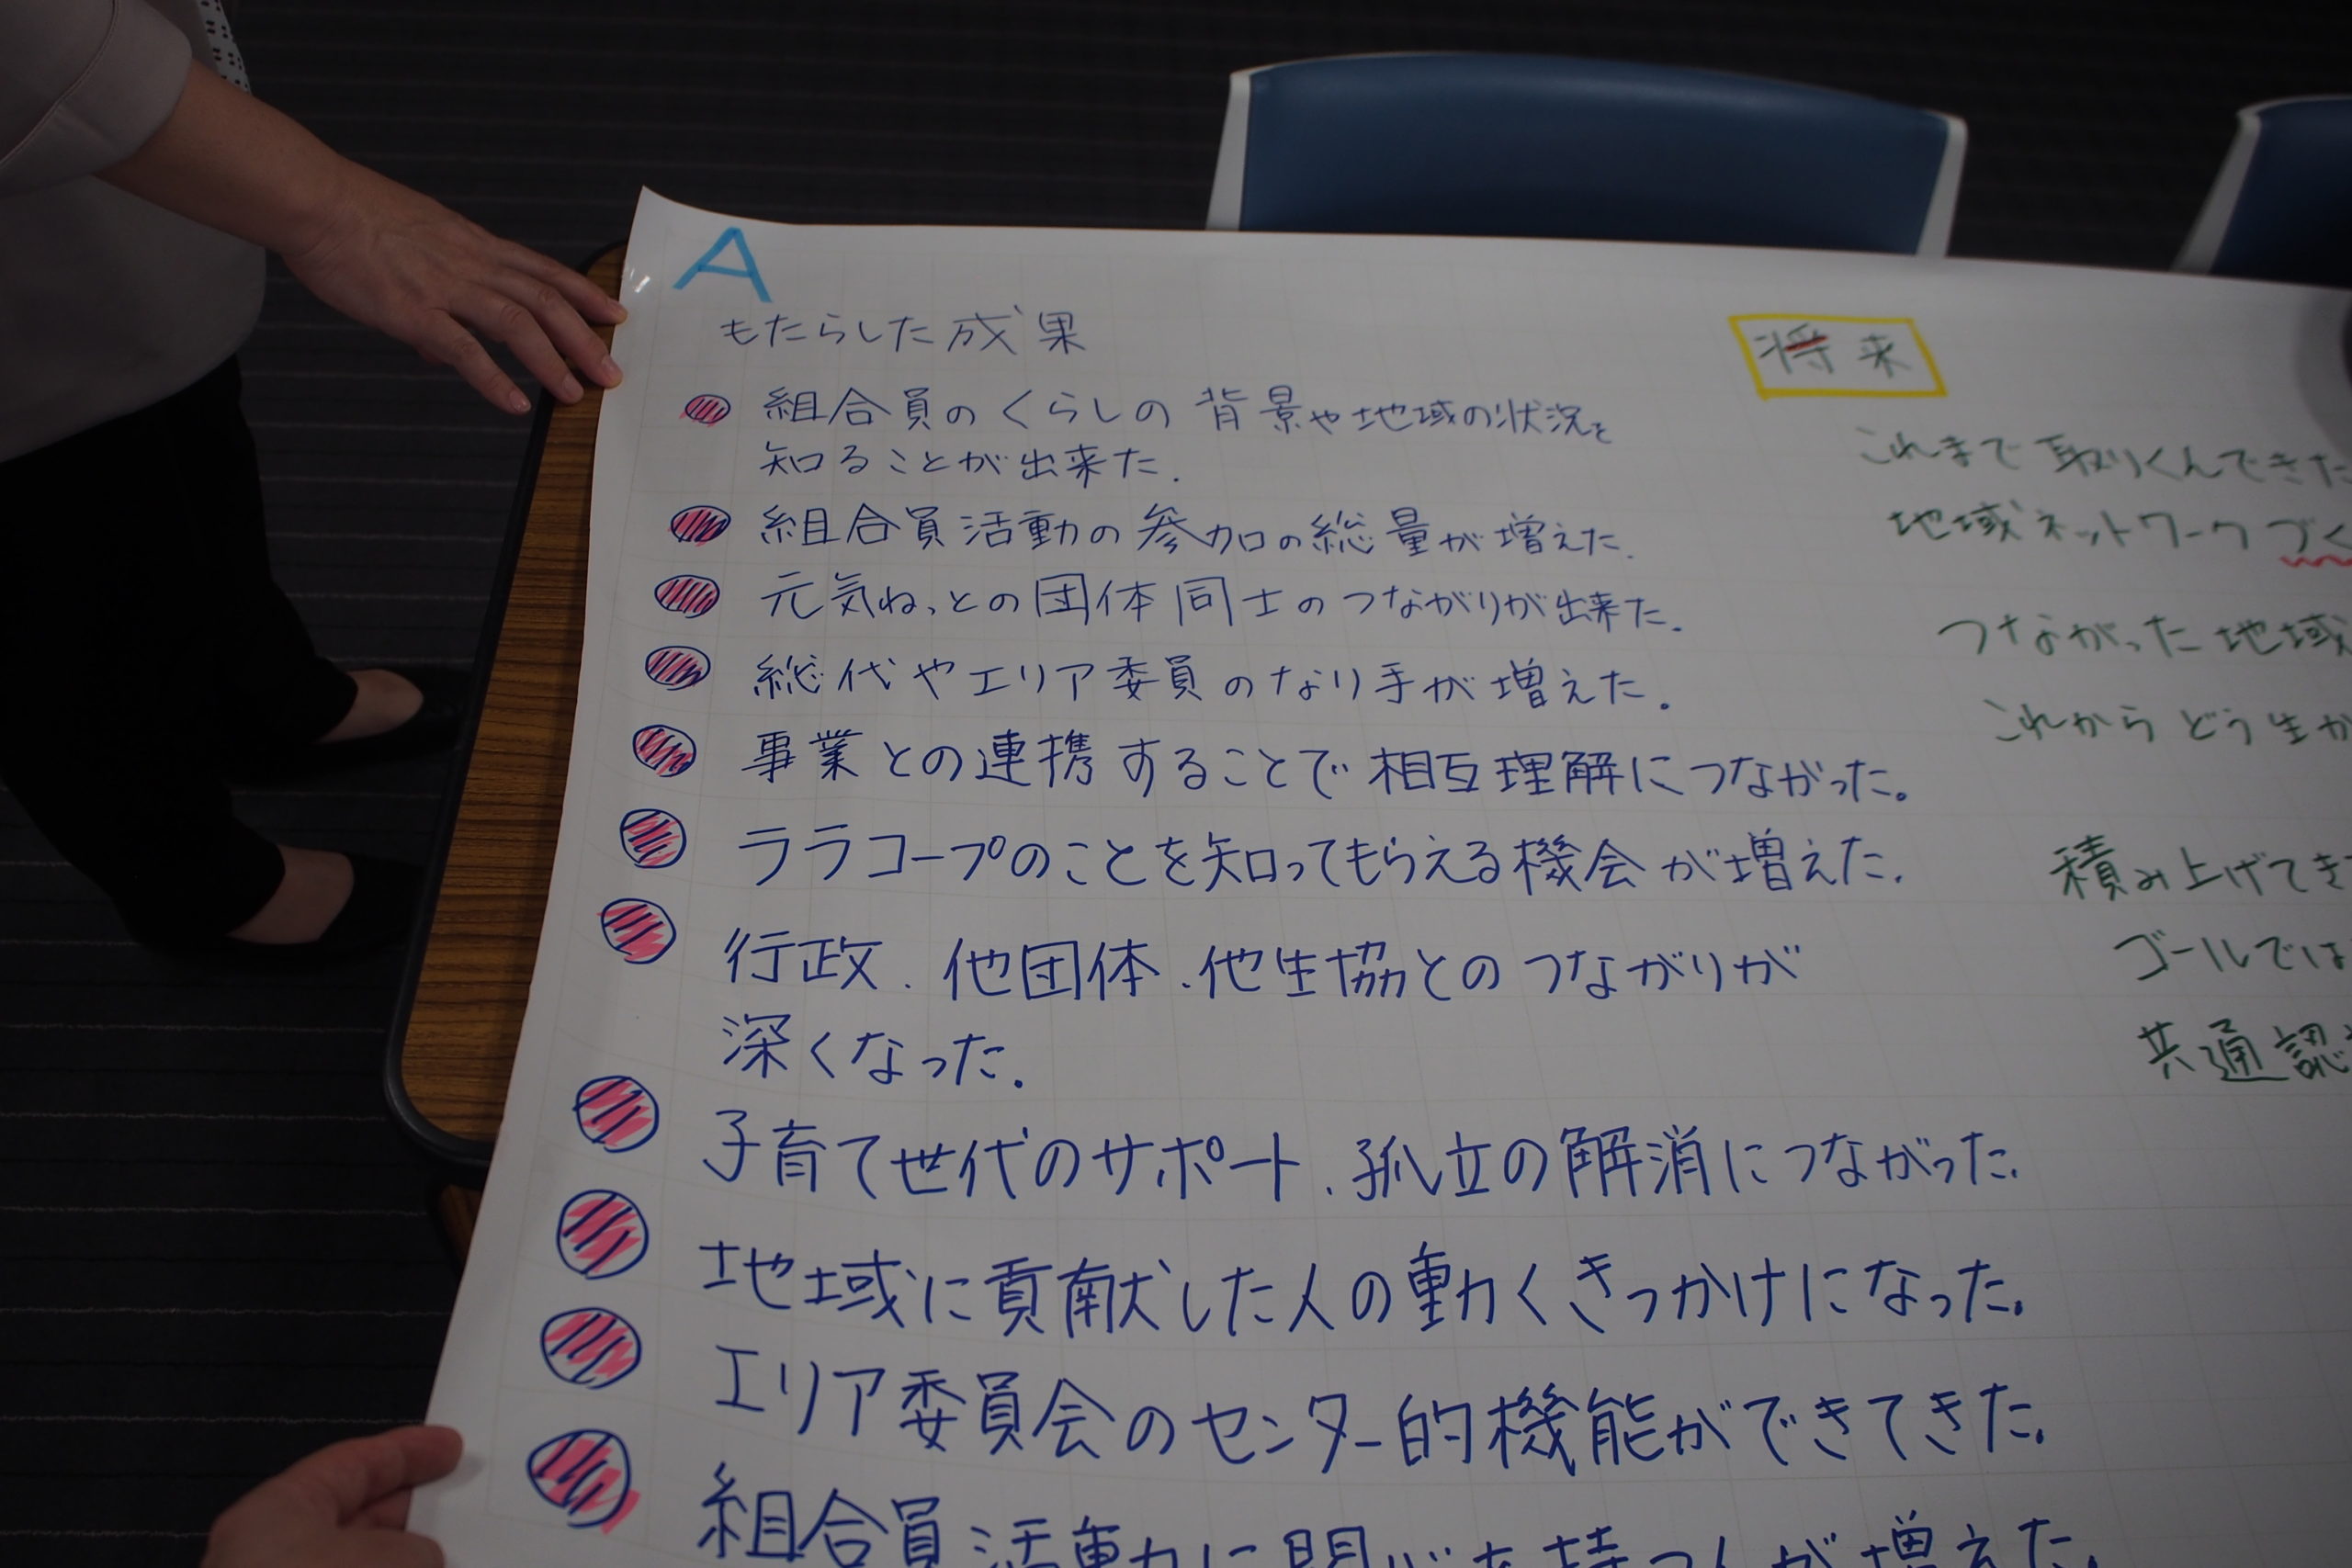 A
もたらした成果
組合員のくらしの背景や地域の状況を
知ることが出来た.
組合員活動の参加の総量が増えた.
元気ねっとの団体同士のつながりが出来た.
総代やエリア委員のなり手が増えた.
事業との連携することで相互理解につながった。
ララコープのことを知ってもらえる機会が増えた.
行政.他団体.他生協とのつながりが
深くなった.
子育て世代のサポート.孤立の解消につながった.
地域に貢献した人の動くきっかけになった.
エリア委員会のセンター的機能ができてきた.
組合員活動に関心を持つ人が増えた.
将来
これまで取りくんできた
地域ネットワークづく
つながった地域
これからどう生か
積み上げてき
ゴールでは
共通認